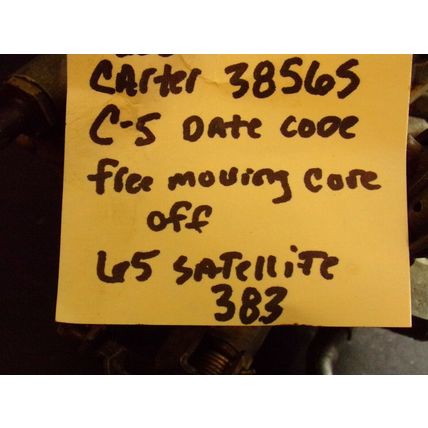 CARTER 3856S
C-5 DATE CODE
free moving core
off
65 SATELLITE
383